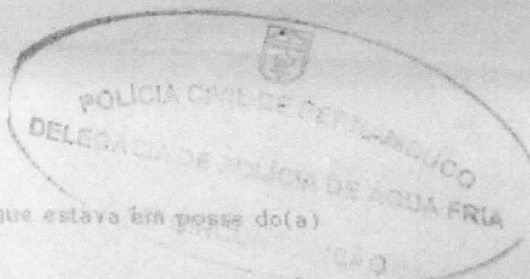 POLICIA CIVIL DE PERNAMBUCO
DELEGACIA DE POLÍCIA DE AGUA FRIA
que estava em posse do(a)